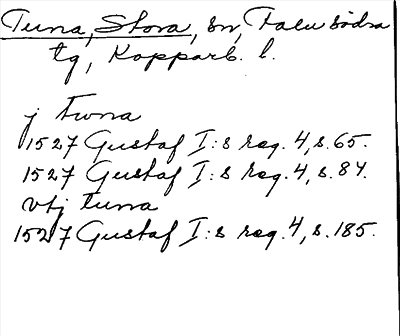 Tuna, Stora, sn, Falu södra
tg, Kopparb. l.
j twna
1527 Gustaf I:s reg. 4, s. 65.
1527 Gustaf I:s reg. 4, s. 84.
vtj tuna
1527 Gustaf I:s reg. 4, s. 185.